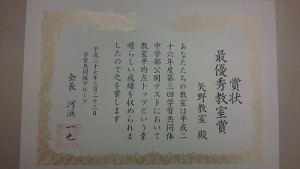 賞状
最優秀教室賞
矢野教室 殿
あなたたちの教室は平成二
十六年度第三回学習共同体
中学部公開テストにおいて
教室平均点トップという素
晴らしい成績を収められま
したので之を賞します
平成二十七年三月二十三日
学習共同体グループ
会長 河浜 一也